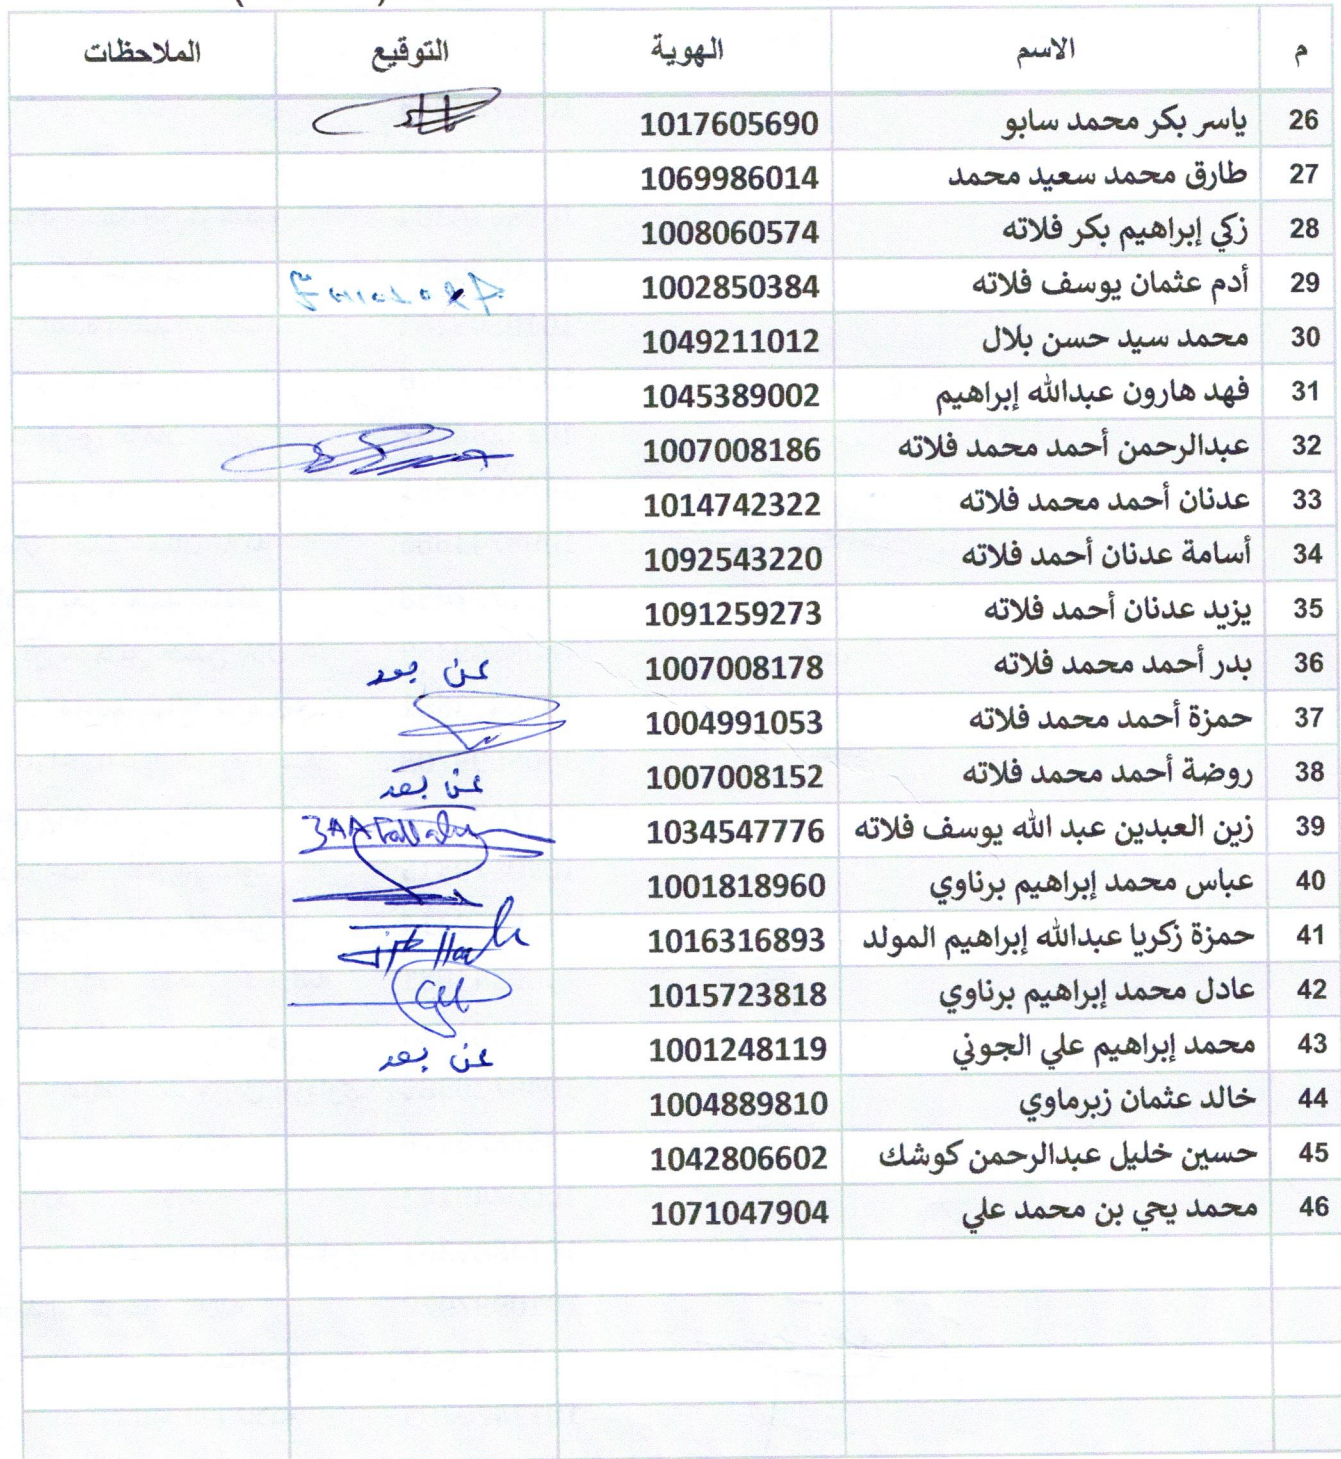 م الاسم الهوية التوقيع الملاحظات
26 ياسر بكر محمد سابو 1017605690
27 طارق محمد سعيد محمد 1069986014
28 زكي إبراهيم بكر فلاته 1008060574
29 أدم عثمان يوسف فلاته 1002850384
30 محمد سيد حسن بلال 1049211012
31 فهد هارون عبدالله إبراهيم 1045389002
32 عبدالرحمن أحمد محمد فلاته 1007008186
33 عدنان أحمد محمد فلاته 1014742322
34 أسامة عدنان أحمد فلاته 1092543220
35 يزيد عدنان أحمد فلاته 1091259273
36 بدر أحمد محمد فلاته 1007008178 عن بعد
37 حمزة أحمد محمد فلاته 1004991053
38 روضة أحمد محمد فلاته 1007008152 عن بعد
39 زين العبدين عبد الله يوسف فلاته 1034547776
40 عباس محمد إبراهيم برناوي 1001818960
41 حمزة زكريا عبدالله إبراهيم المولد 1016316893
42 عادل محمد إبراهيم برناوي 1015723818
43 محمد إبراهيم علي الجوني 1001248119 عن بعد
44 خالد عثمان زبرماوي 1004889810
45 حسين خليل عبدالرحمن كوشك 1042806602
46 محمد يحي بن محمد علي 1071047904